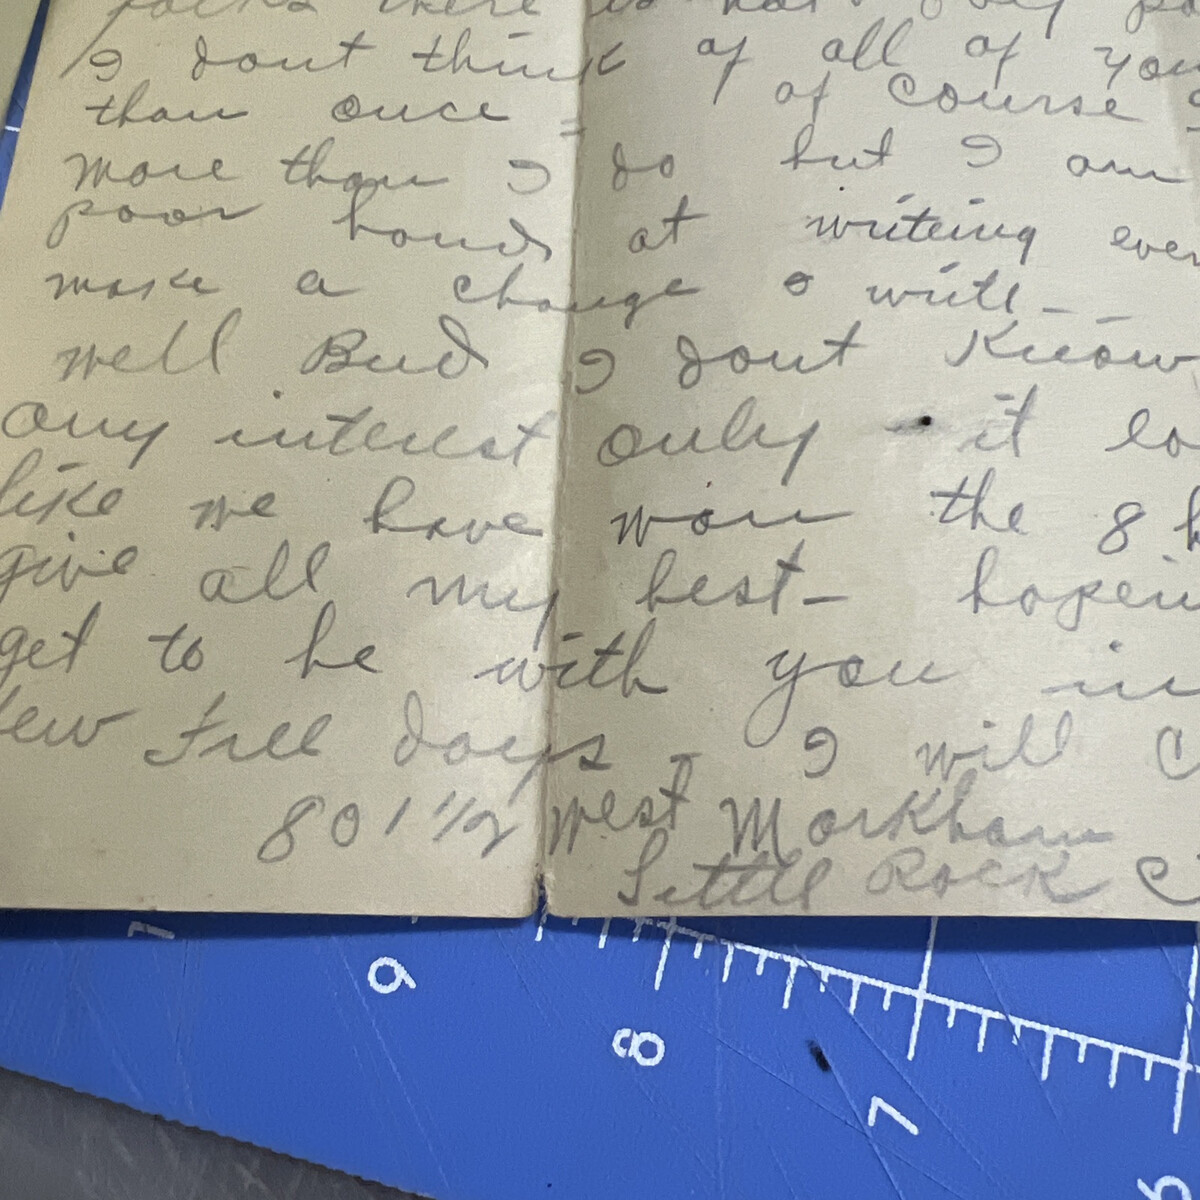 folks there is not
I dont think of all of you
than once = of course
more than I do but I am
poor hand at writeing ever
make a change & write -
well Bud I dont Know
any interest only - it lo
like we have won the 8 h
give all my best - hopein
get to be with you in
few Free days - I will c
801 1/2 west Markham
Little Rock
9
8
7